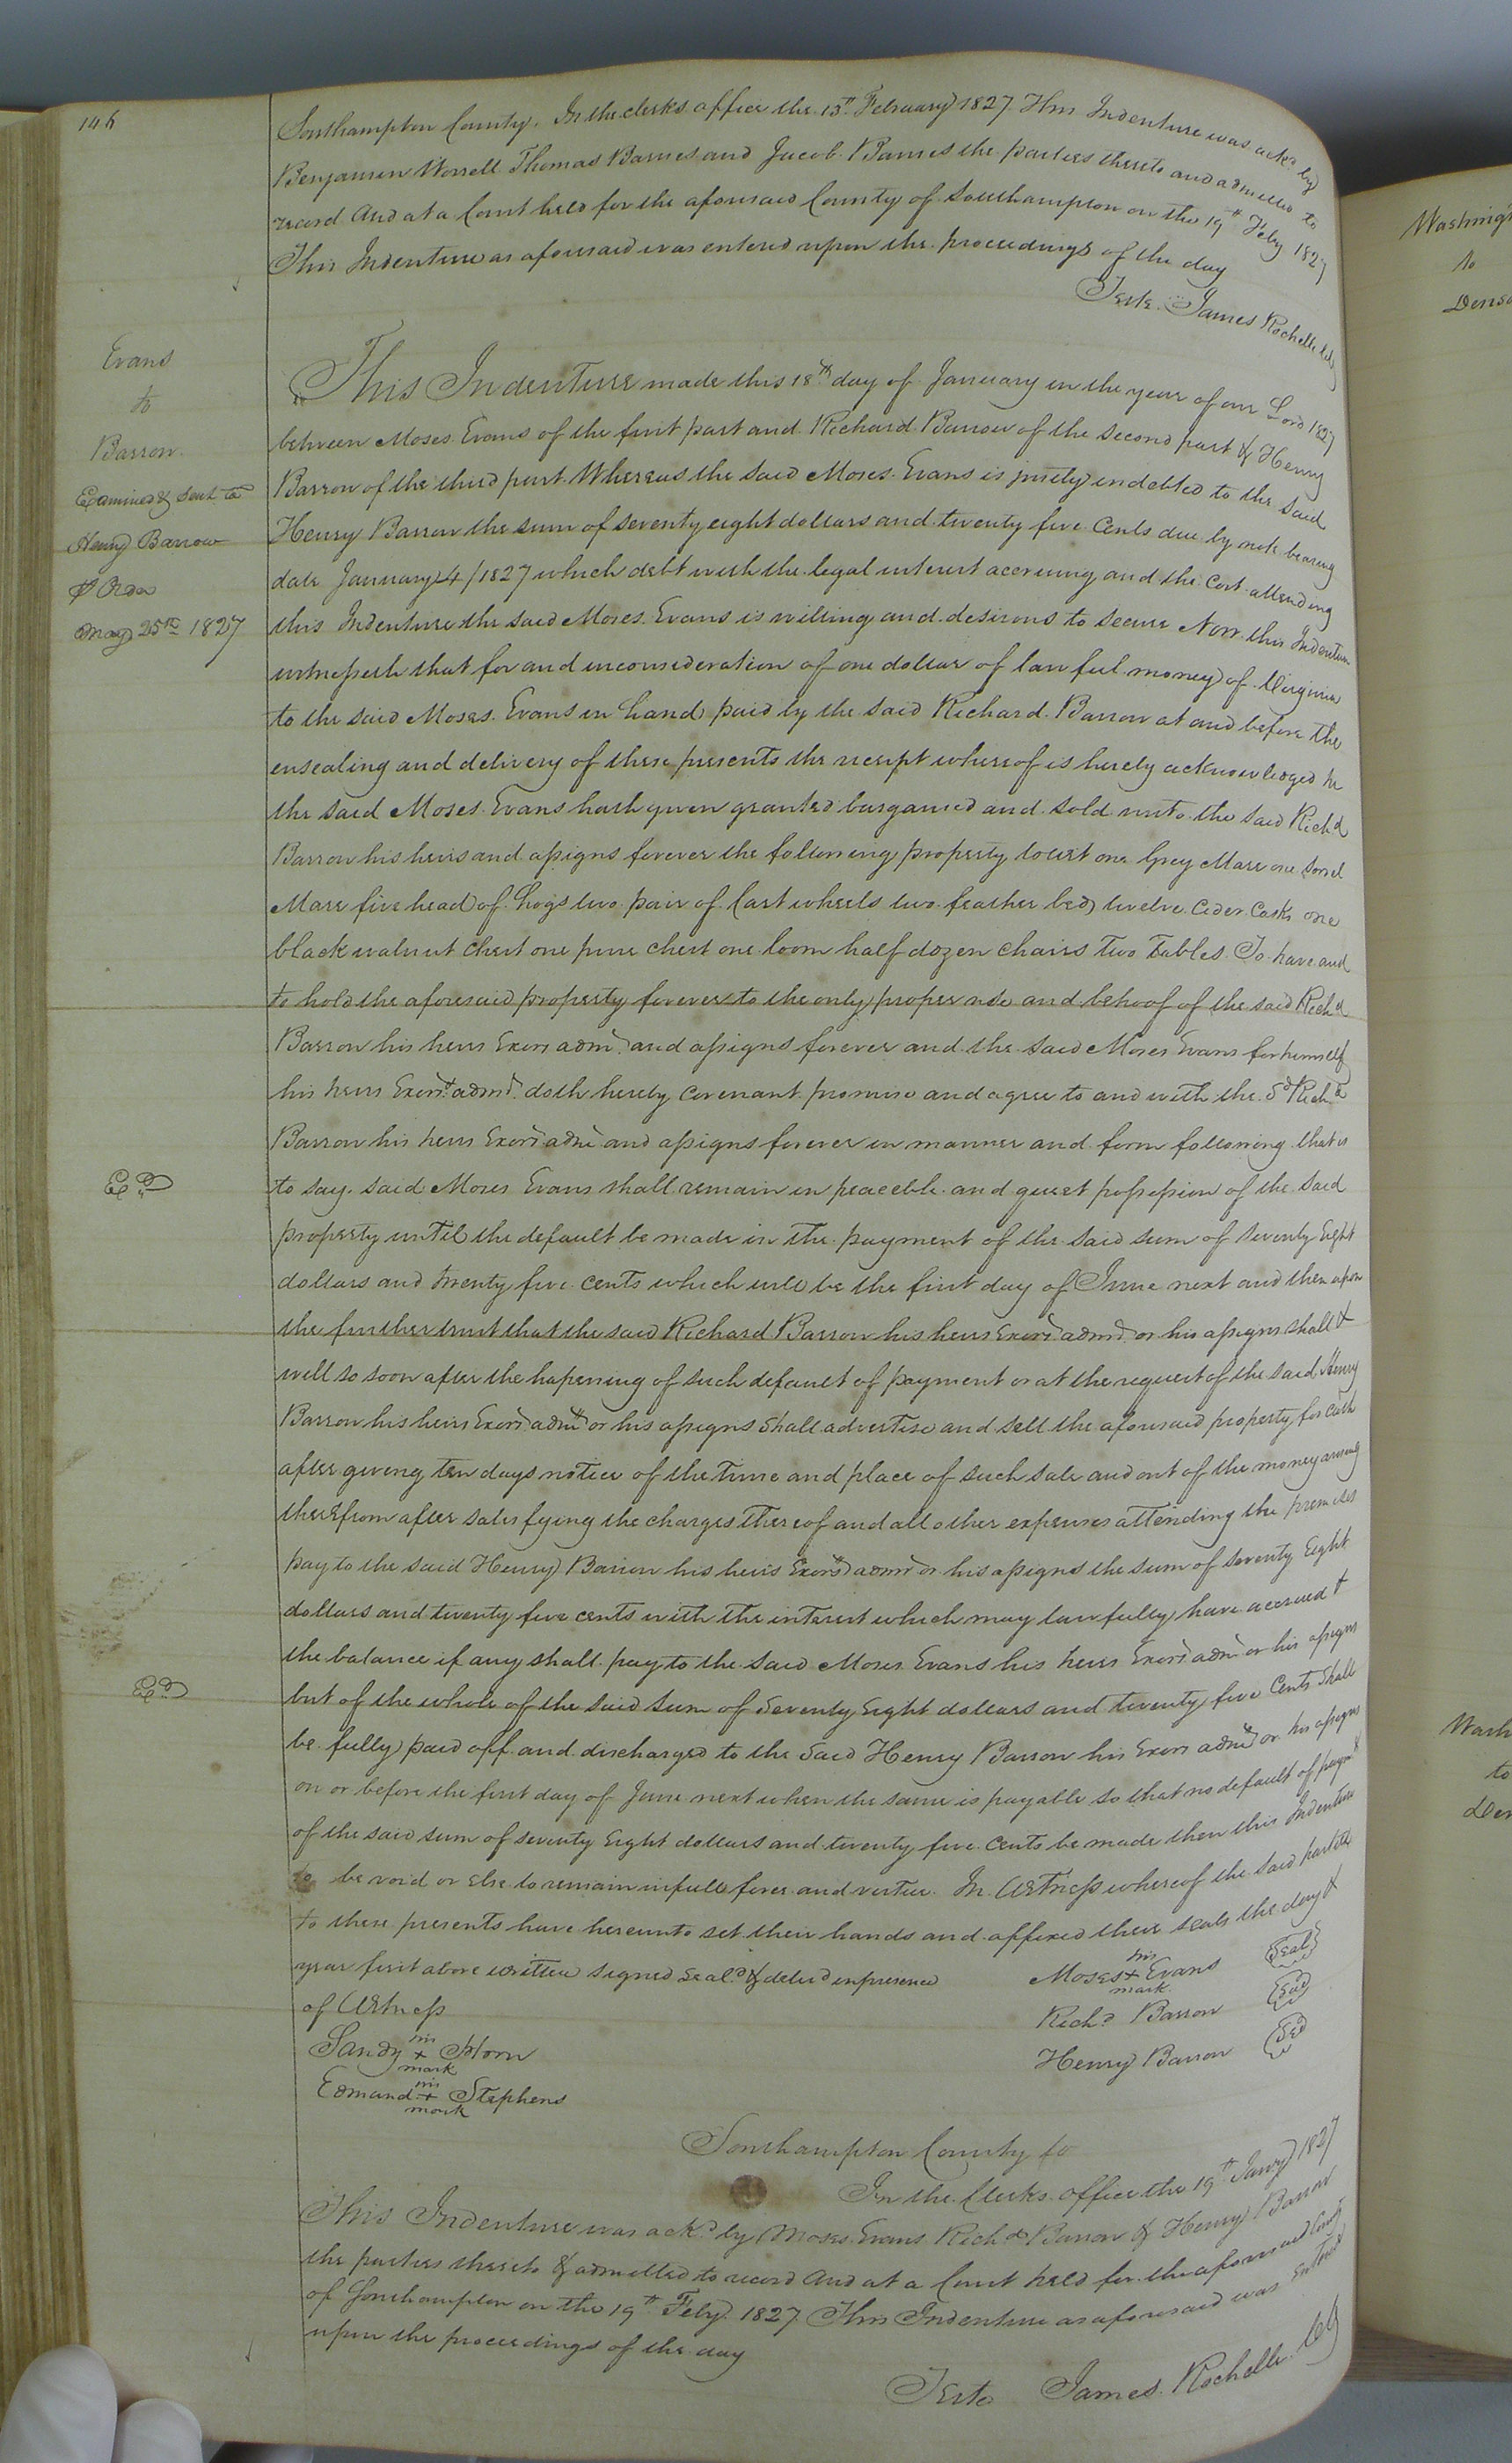 146
Southampton County. In the clerks office the 13th February 1827 This Indenture was ackd by
Benjamin Worrell Thomas Barnes and Jacob Barnes the parties thereto and admitted to
record And at a Court held for the aforesaid County of Southampton on the 19th Feby 1827
This Indenture as aforesaid was entered upon the proceedings of the day
Teste James Rochelle clk
Evans
to
Barrow
Examined & sent to
Henry Barrow
P Order
May 25th 1827
This Indenture made this 18th day of January in the year of our Lord 1827
between Moses Evans of the first part and Richard Barrow of the second part & Henry
Barrow of the third part Whereas the said Moses Evans is justly indebted to the said
Henry Barrow the sum of seventy eight dollars and twenty five Cents due by note bearing
date January 4/1827 which debt with the legal interest accruing and the Cost attending
this Indenture the said Moses Evans is willing and desirous to secure Now this Indenture
witnesseth that for and inconsideration of one dollar of lawful money of Virginia
to the said Moses Evans in hand paid by the said Richard Barrow at and before the
ensealing and delivery of these presents the receipt whereof is hereby acknowledged he
the said Moses Evans hath given granted bargained and sold unto the said Richd
Barrow his heirs and assigns forever the following property towit one Grey Mare one Sorrel
Mare five head of hogs two pair of Cart wheels two feather bed twelve Cider Casks one
black walnut Chest one pine chest one loom half dozen chairs Two Tables To have and
to hold the aforesaid property forever to the only proper use and behoof of the said Richd
Barrow his heirs Exors adms and assigns forever and the said Moses Evans for himself
his heirs Exors adms doth hereby Covenant promise and agree to and with the Sd Richd
Barrow his heirs Exors adms and assigns forever in manner and form following that is
to say said Moses Evans shall remain in peaceble and quiet possession of the said
property until the default be made in the payment of the said sum of Seventy Eight
dollars and twenty five Cents which will be the first day of June next and then upon
the further trust that the said Richard Barrow his heirs Exors adms or his assigns shall &
will so soon after the hapening of such default of payment or at the request of the said Henry
Barrow his heirs Exors adms or his assigns shall advertise and sell the aforesaid property for cash
after giving ten days notice of the time and place of such sale and out of the money arising
therefrom after satisfying the charges thereof and all other expenses attending the premises
pay to the said Henry Barrow his heirs Exors adms or his assigns the sum of seventy Eight
dollars and twenty five cents with the interest which may lawfully have accrued &
the balance if any shall pay to the said Moses Evans his heirs Exors adms or his assigns
but of the whole of the said sum of Seventy Eight dollars and twenty five Cents Shall
be fully paid off and discharged to the said Henry Barrow his Exors adms or his assigns
on or before the first day of June next when the same is payable so that no default of paymt
of the said sum of seventy Eight dollars and twenty five Cents be made then this Indenture
to be void or else to remain in full force and virtue In Witness whereof the said parties
to these presents have hereunto set their hands and affixed their seals the day &
year first above written signed Seald & delivd in presence
of Witness
Moses his + mark Evans Seal
Richd Barrow Seal
Henry Barrow Seal
Sandy his + mark Horn
Edmand his + mark Stephens
Southampton County to
In the Clerks office the 19th Jany 1827
This Indenture was ackd by Moses Evans Richd Barrow & Henry Barrow
the parties thereto & admitted to record And at a Court held for the aforesaid County
of Southampton on the 19th Feby 1827 This Indenture as aforesaid was entered
upon the proceedings of the day
Teste James Rochelle clk
Washing
to
Dens
Wash
to
Den